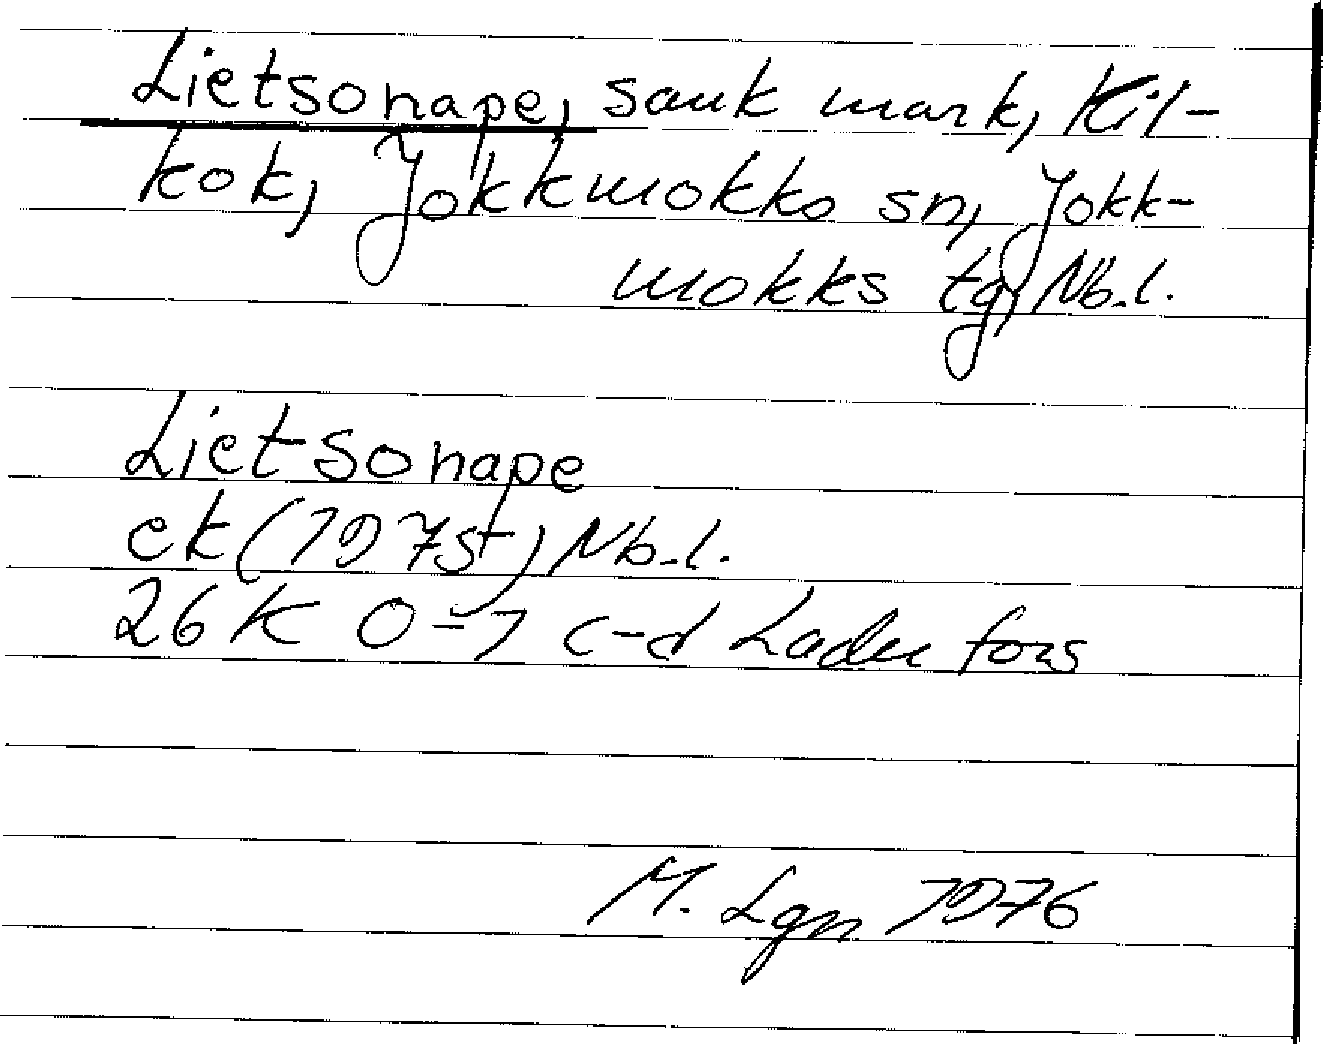 Lietsonape, sank mark, Kil-
kok, Jokkmokks sn, Jokk-
mokks tg, Nb.l.
Lietsonape
ek (1975t) Nb.l.
26 K 0-1 c-d Ladu fors
M. Lgn 1976